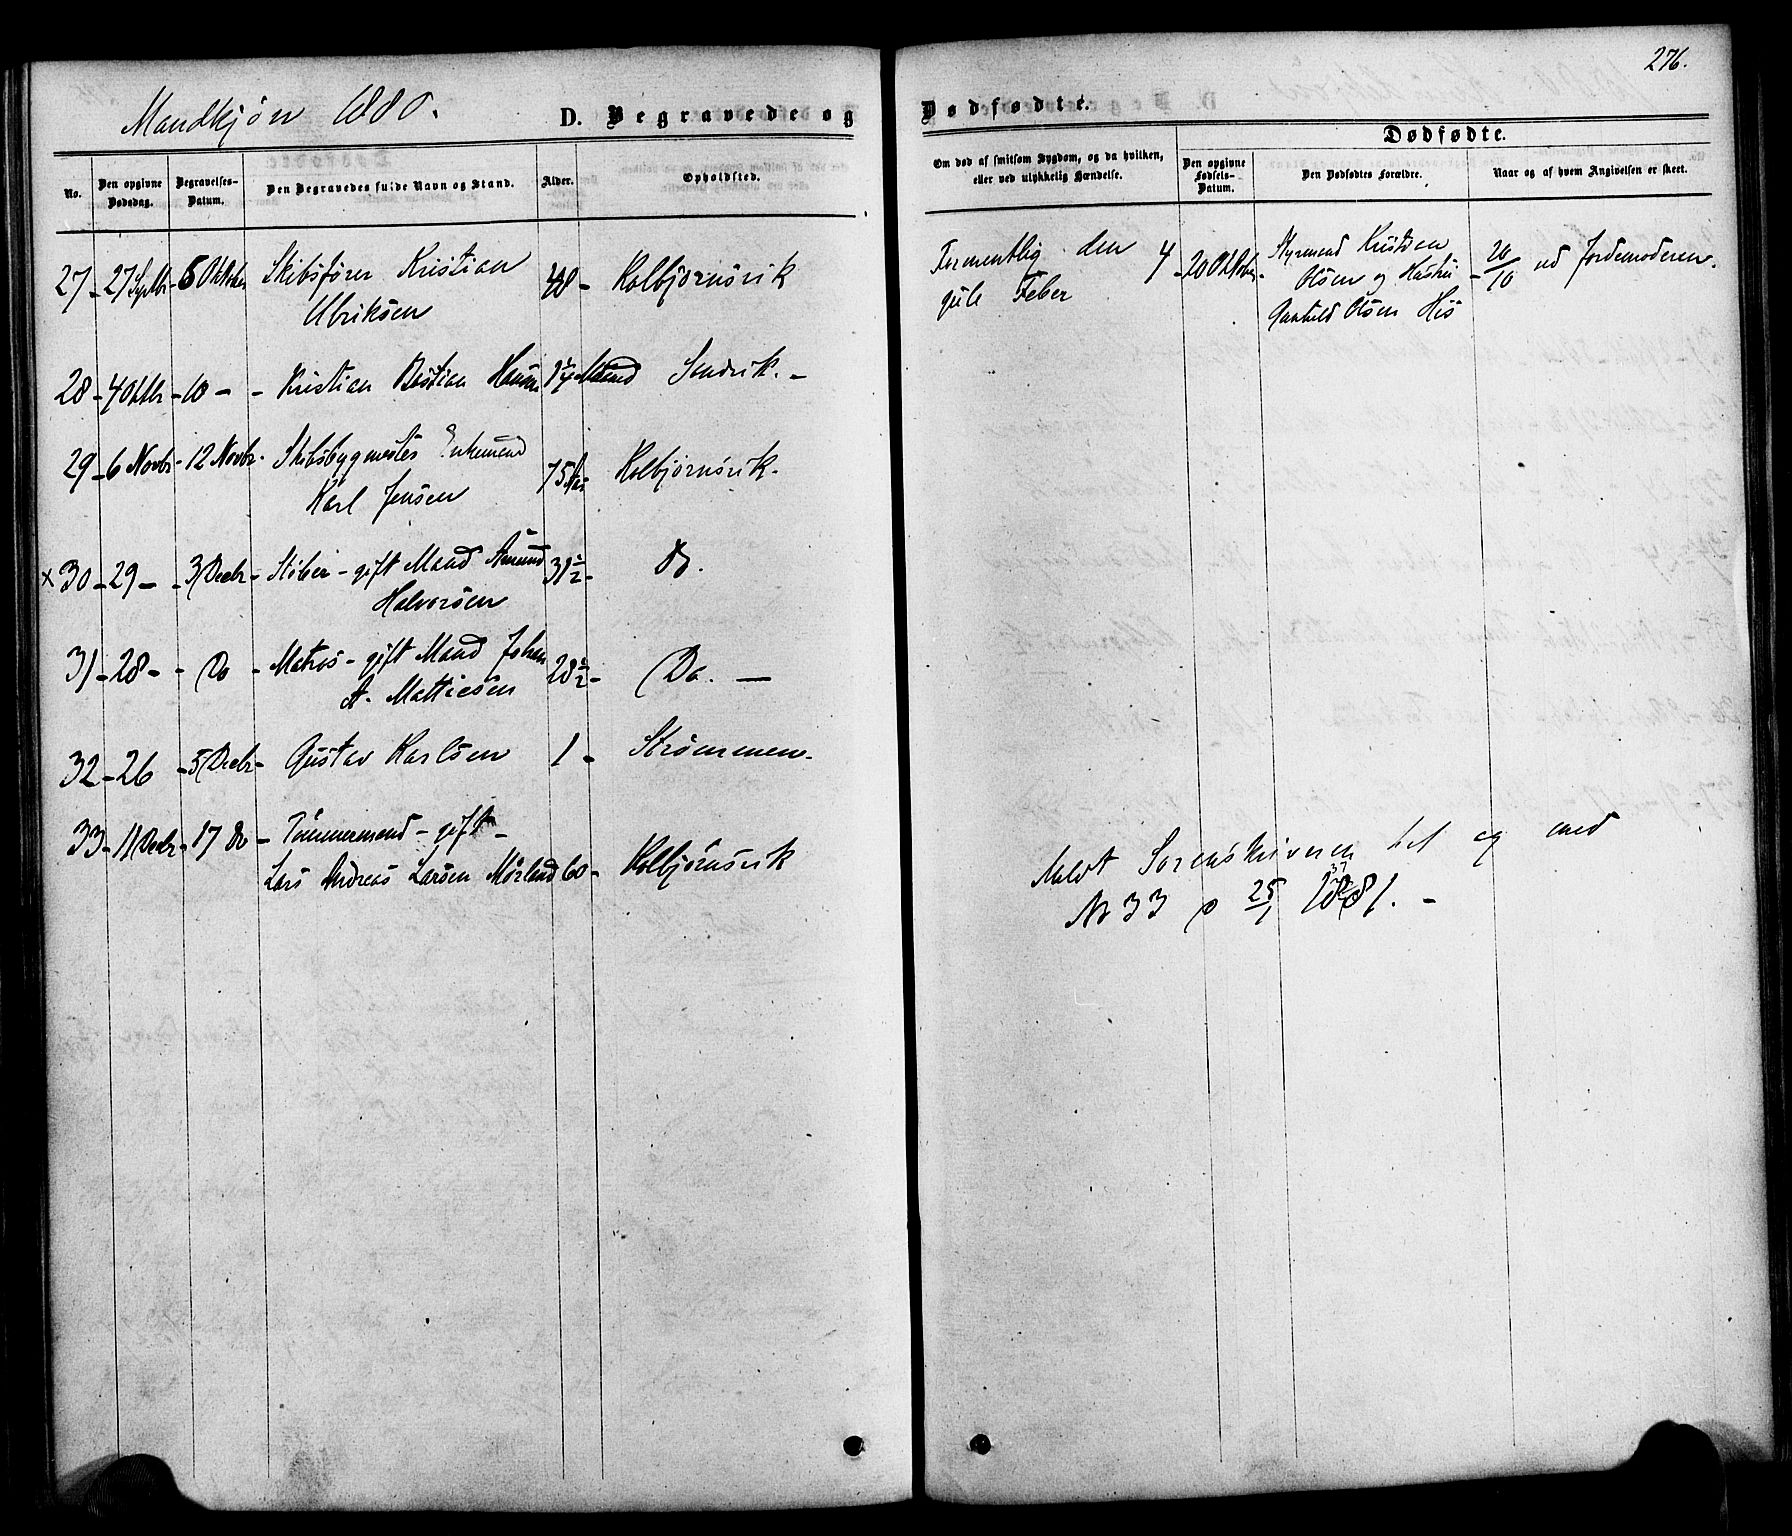 276.
Mandkjøn 1880.
D. Begravede og
Dødfødte.
Dødfødte.
No.
Den opgivne Dødsdag.
Begravelses-Datum.
Den Begravedes fulde Navn og Stand.
Alder.
Opholdsted.
Om død af smitsom Sygdom, og da hvilken, eller ved ulykkelig Hændelse.
Den opgivne Fødsels-Datum.
Den Dødfødtes Forældre.
Naar og af hvem Angivelsen er skeet.
27 - 27 Septbr - 5 Oktober Skibsfører Kristian 48 - Kolbjørnsvik
Ulriksen
Formentlig den
gule Feber
4 - 20 Oktober - Styrmand Kristian
Olsen og Hustru
Gunhild Olsen His
20/10 ved Jordemoderen.
28 - 4 Oktbr - 10 - - Kristian Bastian Hansen Maaned Sandvik. -
29 - 6 Novbr - 12 Novbr. Skibsbygmester Enkemand 75 Aar Kolbjørnsvik.
Karl Jensen
x 30 - 29 - - 3 Decbr - gift Mand Amund 31 1/2 - Do.
Halvorsen
31 - 28 - - Do - Matros - gift Mand Johan 28 1/2 - Do. -
A. Mattiesen
32 - 26 - 5 Decbr - Gustav Karlsen 1 - Strømmen.
33 - 11 Decbr - 17 Do - Tømmermand - gift -
Lars Andreas Larsen Mørland 60 - Kolbjørnsvik
Meldt Sorenskriveren til og med
No 33 25/1 1881. -